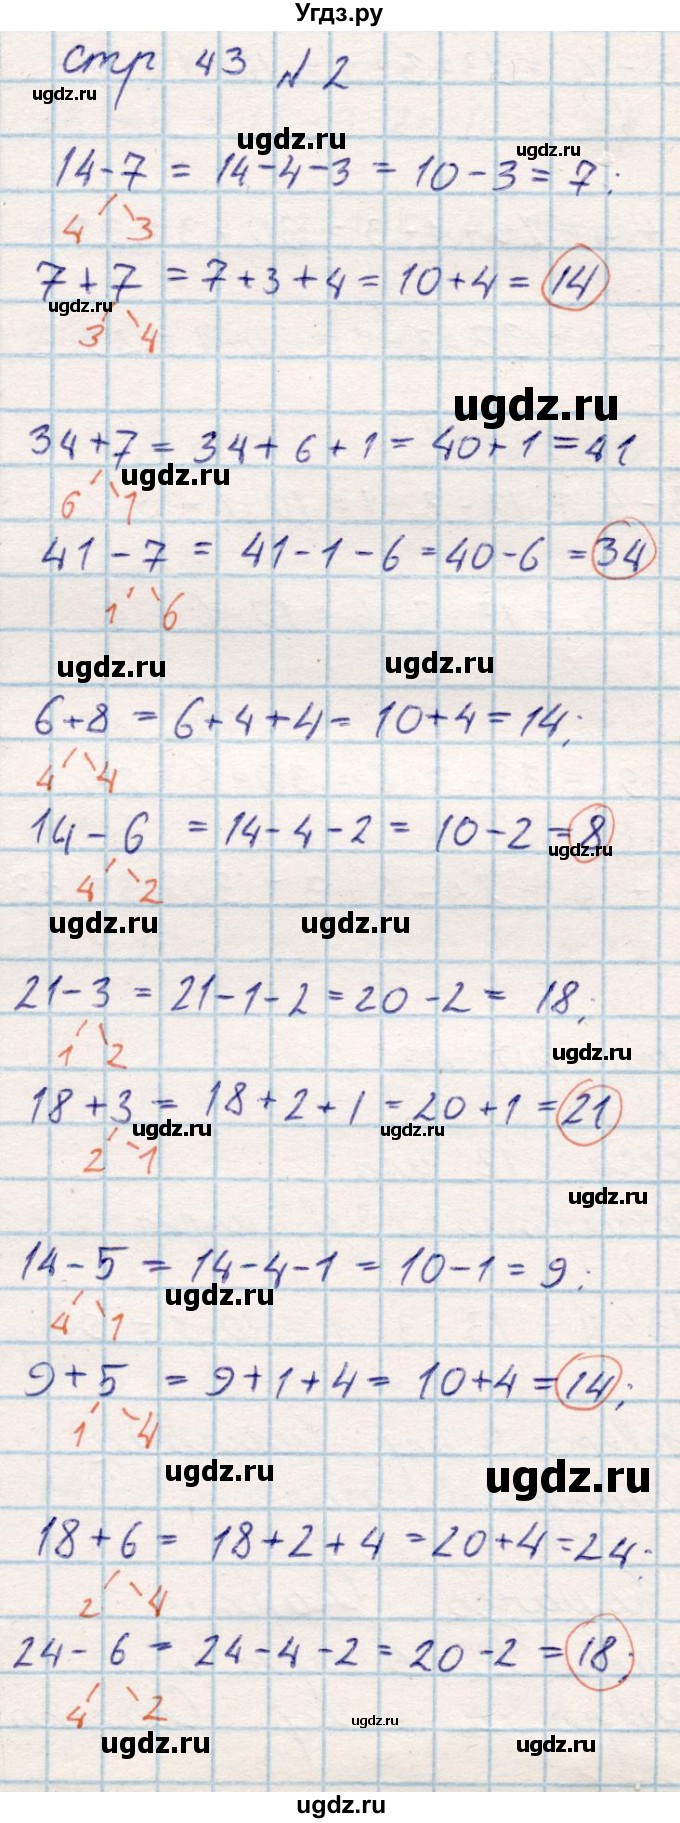 Угдз.ру
стр 43 №2
ugdz.ru
ugdz.ru
ugdz.ru
14-7 = 14-4-3 = 10-3 = 7;
4 3
7+7 = 7+3+4 = 10+4 = 14
ugdz.ru
3 4
ugdz.ru
34+7 = 34+6+1 = 40+1 = 41
ugdz.ru
6 1
41-7 = 41-1-6 = 40-6 = 34
1 6
ugdz.ru ugdz.ru
6+8 = 6+4+4 = 10+4 = 14;
4 4
14-6 = 14-4-2 = 10-2 = 8
ugdz.ru
4 2
ugdz.ru ugdz.ru
21-3 = 21-1-2 = 20-2 = 18;
1 2
ugdz.ru
18+3 = 18+2+1 = 20+1 = 21
ugdz.ru ugdz.ru
2 1
ugdz.ru
14-5 = 14-4-1 = 10-1 = 9;
ugdz.ru
4 1
9+5 = 9+1+4 = 10+4 = 14;
1 4
ugdz.ru ugdz.ru
18+6 = 18+2+4 = 20+4 = 24;
2 4
24-6 = 24-4-2 = 20-2 = 18;
4 2
ugdz.ru
ugdz.ru ugdz.ru
ugdz.ru